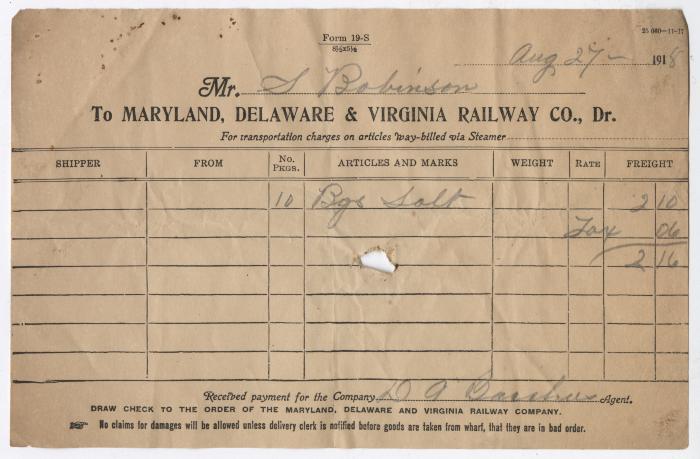 Form 19-S
8½x5½
25 000—11-17
Aug 27— 1918
Mr. S Robinson
To MARYLAND, DELAWARE & VIRGINIA RAILWAY CO., Dr.
For transportation charges on articles way-billed via Steamer
SHIPPER FROM No. PKGS. ARTICLES AND MARKS WEIGHT RATE FREIGHT
10 Bgs Salt 2 10
Tax 06
2 16
Received payment for the Company D A Agent.
DRAW CHECK TO THE ORDER OF THE MARYLAND, DELAWARE AND VIRGINIA RAILWAY COMPANY.
No claims for damages will be allowed unless delivery clerk is notified before goods are taken from wharf, that they are in bad order.